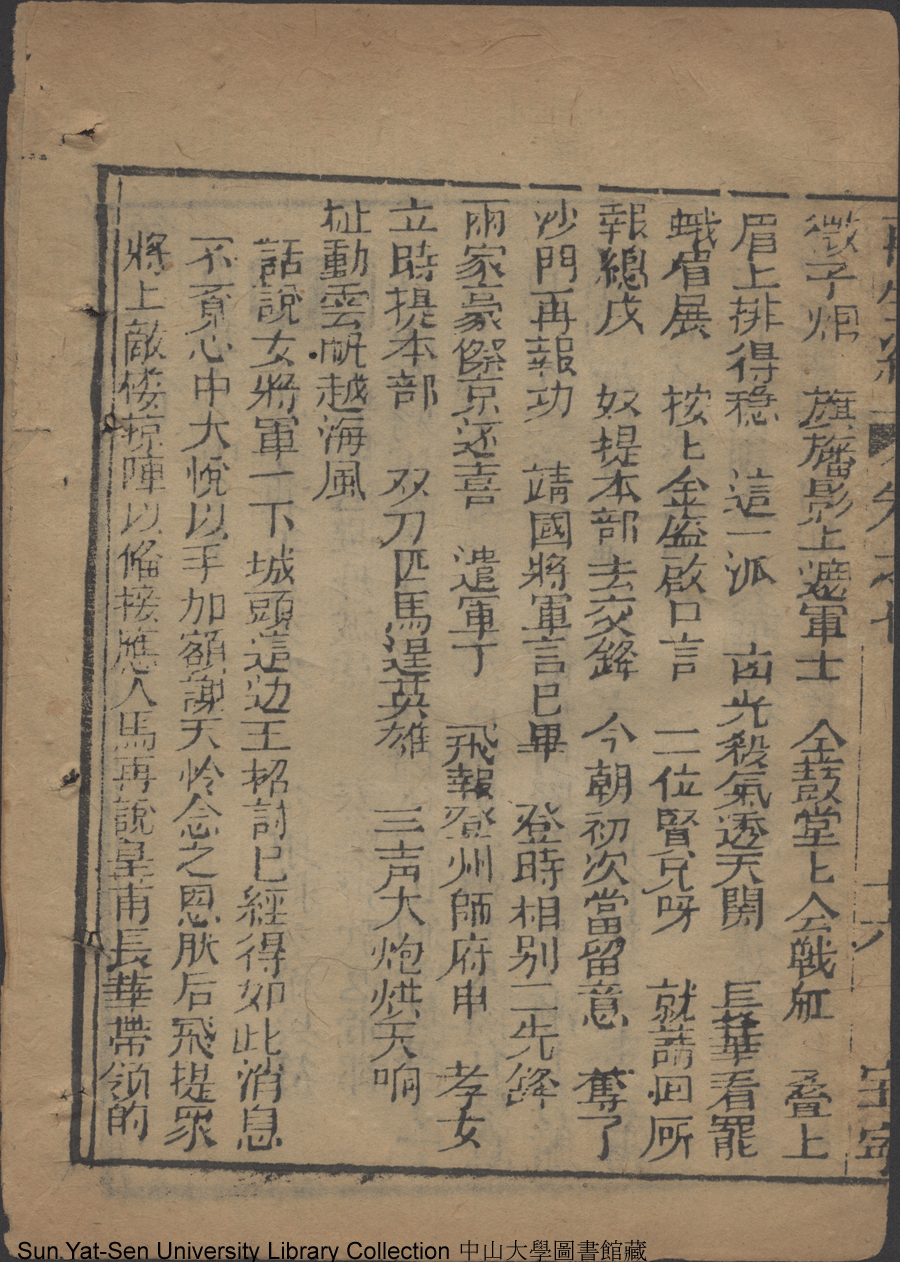 再生緣 卷之七 十六 宝寧
微子烟 旗旛影上遮軍士 金鼓堂上会戰缸 叠上
眉上排得穏 這一派 凶光殺氣透天関 長華看罷
蛾眉展 按上金盔啟口言 二位賢兄呀 就請回所
報緫戎 奴提本部去交鋒 今朝初次當留意 奪了
沙門再報功 靖國將軍言已畢 登時相别二先鋒
兩家豪傑京还喜 遣軍丁 飛報登州師府申 孝女
立時提本部 双刀匹馬逞英雄 三声大炮烘天响
扯動雲帆越海風
話說女將軍一下城頭這边王招討已經得如此消息
不覔心中大悅以手加額謝天怜念之恩肰后飛提衆
將上敵楼掠陣以俻接應人馬再說皇甫長華帶領的
Sun Yat-Sen University Library Collection 中山大學圖書館藏